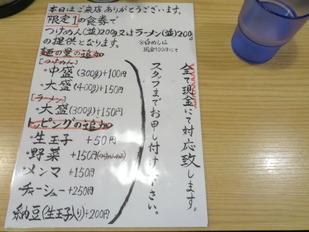 本日はご来店ありがとうございます。
限定1の食券で
つけめん(並)200g又はラーメン(並)200g
の提供となります。
麺の量の追加
[つけめん]
・中盛(300g)+100円
・大盛(400g)+150円
[ラーメン]
・大盛(300g)+150円
トッピングの追加
・生玉子 +50円
・野菜 +150円
・メンマ +150円
・チャーシュー+250円
納豆(生玉子入り)+200円
全て現金にて対応致します。
スタッフまでお申し付けください。